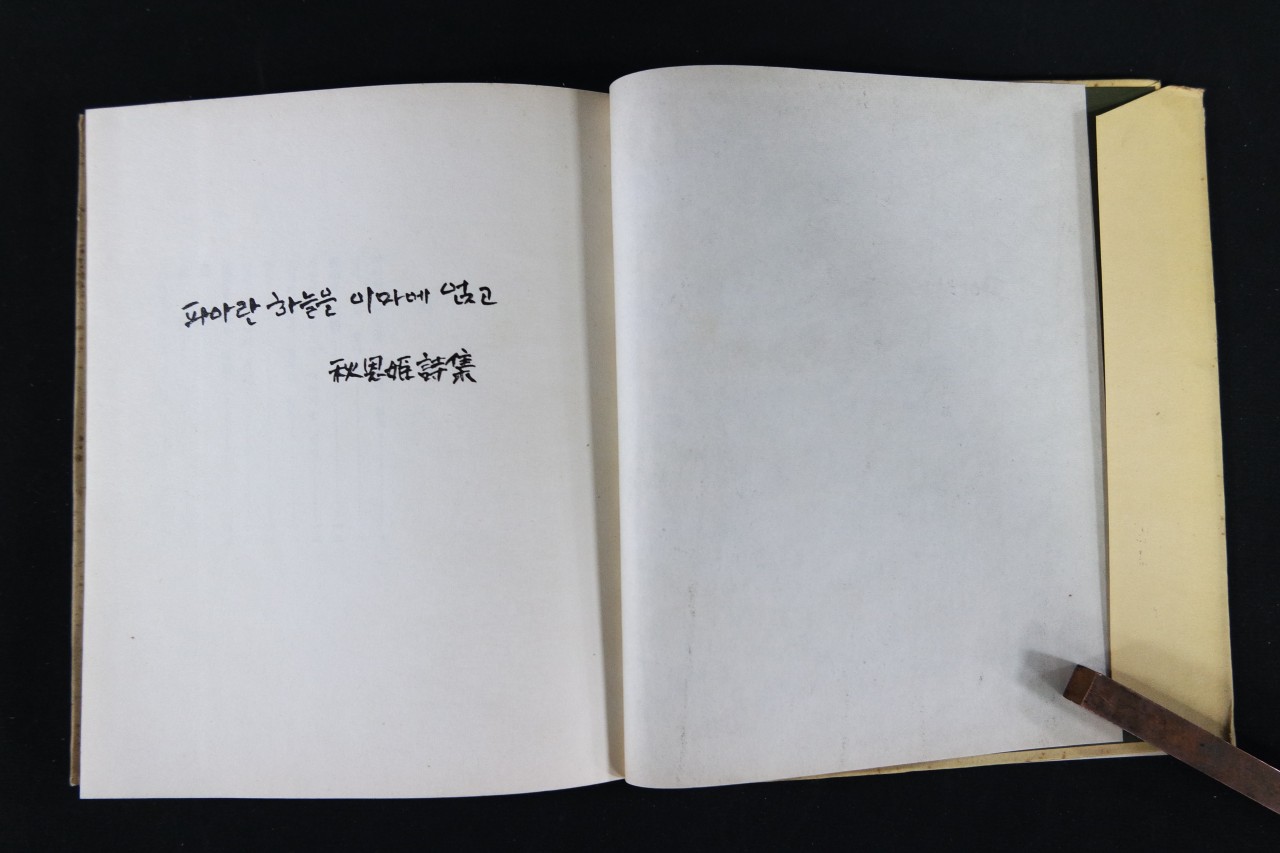 파아란 하늘을 이마에 얹고
秋恩姬詩集